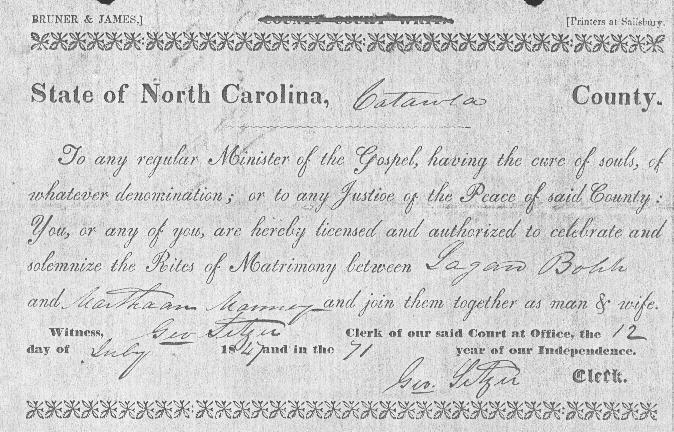 BRUNER & JAMES.] COUNTY COURT WRIT. [Printers at Salisbury.
State of North Carolina, Catawba County.
To any regular Minister of the Gospel, having the cure of souls, of
whatever denomination; or to any Justice of the Peace of said County:
You, or any of you, are hereby licensed and authorized to celebrate and
solemnize the Rites of Matrimony between Logan Bolch
and Marthaann Manney and join them together as man & wife.
Witness, Geo Setzer Clerk of our said Court at Office, the 12
day of July 1847 and in the 71 year of our Independence.
Geo. Setzer Clerk.